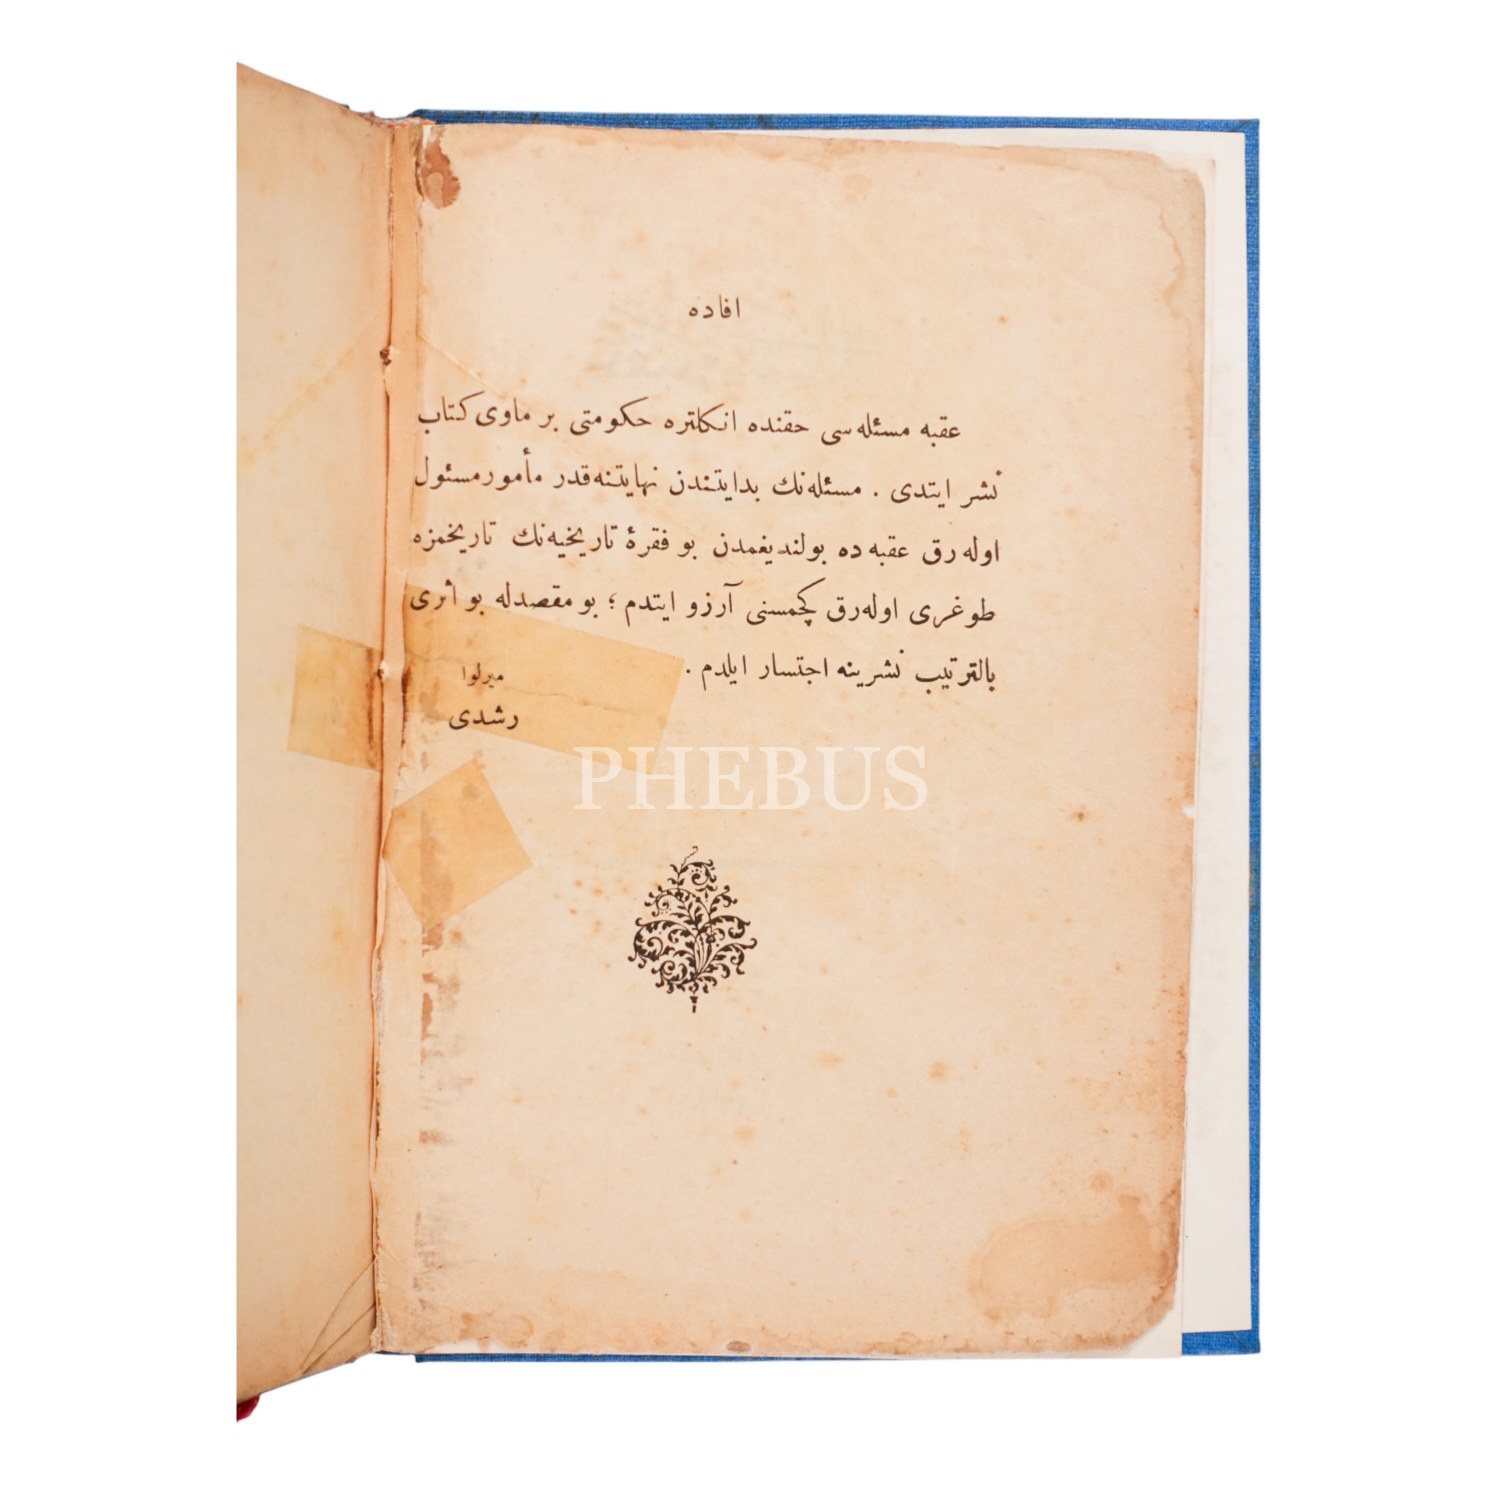 افاده
عقبه مسئله‌سی حقنده انكلتره حكومتی بر ماوی كتاب
نشر ایتدی . مسئله‌نك بدایتندن نهایتنه‌قدر مأمور مسئول
اوله‌رق عقبه ده بولندیغمدن بو فقرهٔ تاریخیه‌نك تاریخمزه
طوغری اوله‌رق كچمسنی آرزو ایتدم ؛ بو مقصدله بو اثری
بالترتیب نشرینه اجتسار ایلدم .
میرلوا
رشدی
PHEBUS